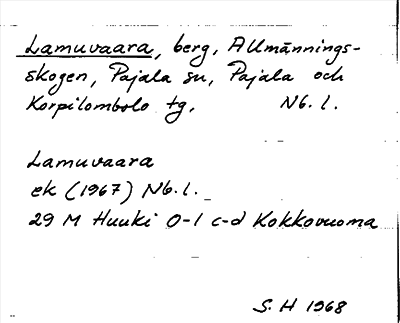 Lamuvaara, berg, Allmännings-
skogen, Pajala sn, Pajala och
Korpilombolo tg, Nb. l.
Lamuvaara
ek (1967) Nb. l.
29 M Huuki 0-1 c-d Kokkovuoma
S. H 1968